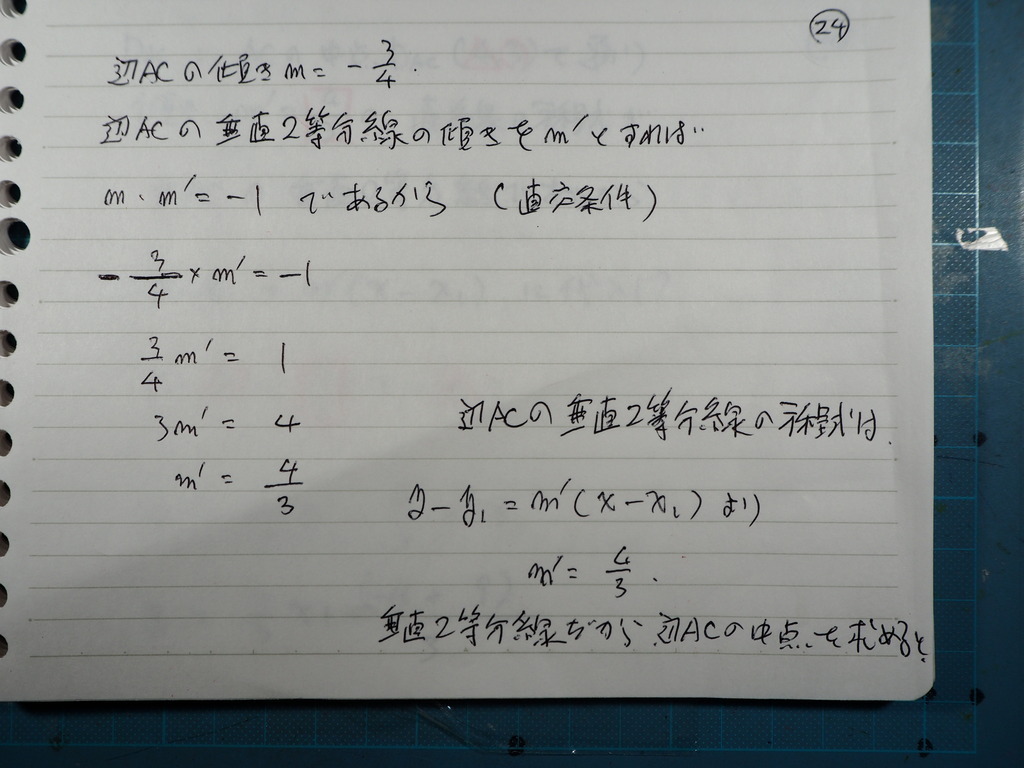 ㉔
辺ACの傾き m = -3/4.
辺ACの垂直2等分線の傾きをm'とすれば
m・m' = -1 であるから (直交条件)
-3/4 × m' = -1
3/4 m' = 1
3m' = 4
m' = 4/3
辺ACの垂直2等分線の方程式は、
y - y₁ = m'(x - x₁) より
m' = 4/3.
垂直2等分線だから 辺ACの中点を求めると、